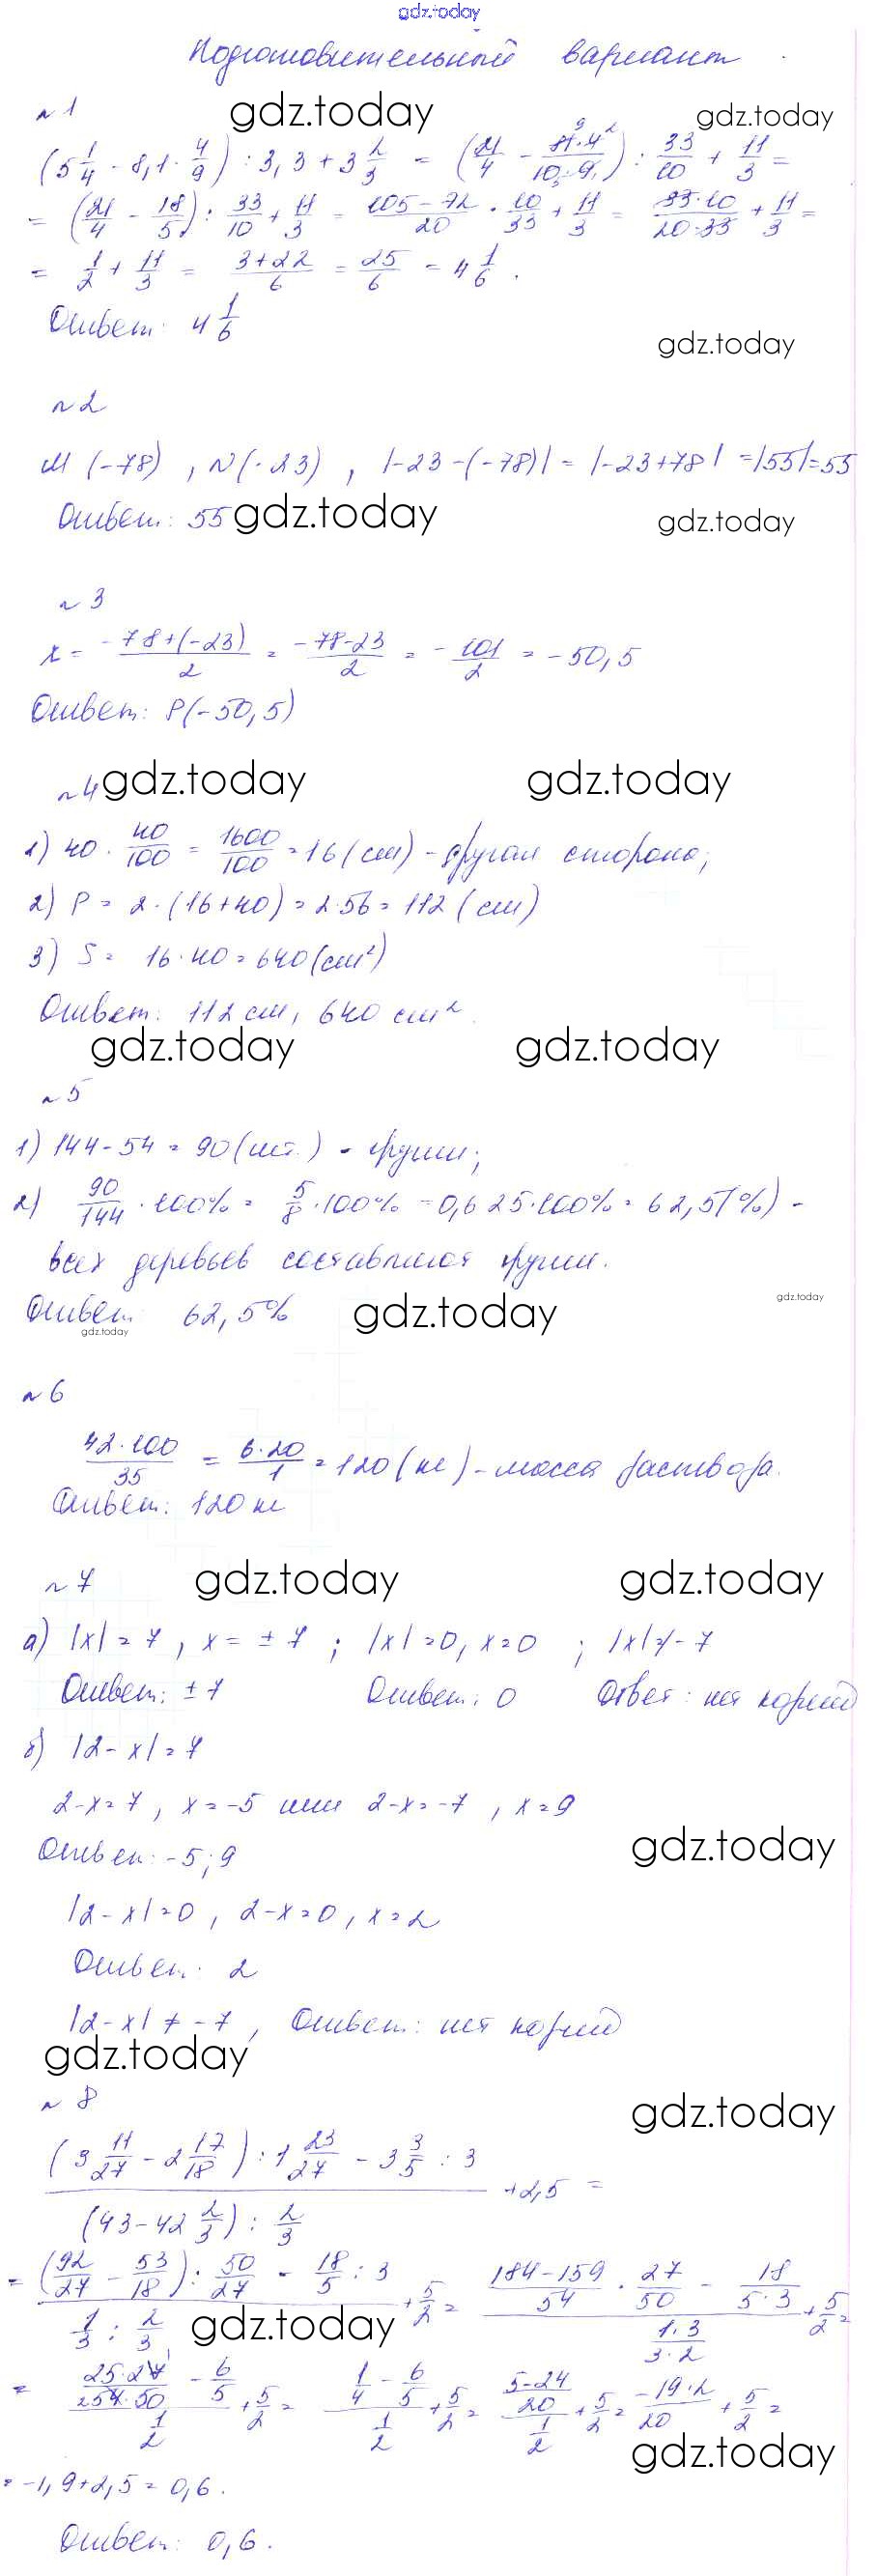 gdz.today
Подготовительный вариант.
№1 gdz.today gdz.today
(5 1/4 - 8,1 · 4/9) : 3,3 + 3 2/3 = (21/4 - 81·4/10·9) : 33/10 + 11/3 =
= (21/4 - 18/5) : 33/10 + 11/3 = 105-72/20 · 10/33 + 11/3 = 33·10/20·33 + 11/3 =
= 1/2 + 11/3 = 3+22/6 = 25/6 = 4 1/6.
Ответ: 4 1/6
gdz.today
№2
M (-78), N(-23), |-23-(-78)| = |-23+78| = |55| = 55
Ответ: 55 gdz.today gdz.today
№3
x = -78+(-23)/2 = -78-23/2 = -101/2 = -50,5
Ответ: P(-50,5)
№4 gdz.today gdz.today
1) 40 · 40/100 = 1600/100 = 16 (см) - другая сторона;
2) P = 2·(16+40) = 2·56 = 112 (см)
3) S = 16·40 = 640 (см²)
Ответ: 112 см, 640 см².
gdz.today gdz.today
№5
1) 144-54 = 90 (шт.) - груши;
2) 90/144 · 100% = 5/8 · 100% = 0,625·100% = 62,5(%) -
всех деревьев составляют груши.
Ответ: 62,5% gdz.today gdz.today
gdz.today
№6
42·100/35 = 6·20/1 = 120 (кг) - масса раствора.
Ответ: 120 кг
№7 gdz.today gdz.today
а) |x| = 7, x = ±7; |x| = 0, x = 0; |x| ≠ -7
Ответ: ±7 Ответ: 0 Ответ: нет корней
б) |2-x| = 7
2-x = 7, x = -5 или 2-x = -7, x = 9
Ответ: -5; 9 gdz.today
|2-x| = 0, 2-x = 0, x = 2
Ответ: 2
|2-x| ≠ -7, Ответ: нет корней
gdz.today
№8 gdz.today
(3 11/27 - 2 17/18) : 1 23/27 - 3 3/5 : 3 / (43-42 2/3) : 2/3 + 2,5 =
= (92/27 - 53/18) : 50/27 - 18/5 : 3 / 1/3 : 2/3 + 5/2 = 184-159/54 · 27/50 - 18/5·3 / 1·3/3·2 + 5/2 =
gdz.today
= 25·27/54·50 - 6/5 / 1/2 + 5/2 = 1/4 - 6/5 / 1/2 + 5/2 = 5-24/20 / 1/2 + 5/2 = -19·2/20 + 5/2 =
gdz.today
= -1,9+2,5 = 0,6.
Ответ: 0,6.